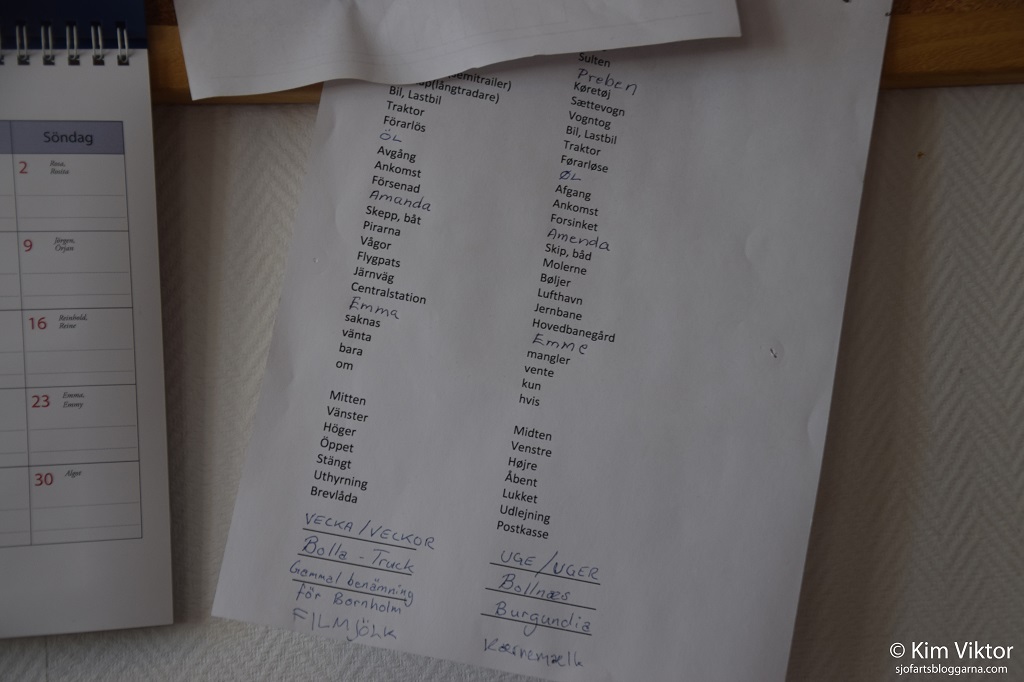 Söndag
2 Rosa, Rosita
9 Jörgen, Örjan
16 Reinhold, Reine
23 Emma, Emmy
30 Alger
(långtradare)
Bil, Lastbil
Traktor
Förarlös
ÖL
Avgång
Ankomst
Försenad
Amanda
Skepp, båt
Pirarna
Vågor
Flygpats
Järnväg
Centralstation
Emma
saknas
vänta
bara
om
Mitten
Vänster
Höger
Öppet
Stängt
Uthyrning
Brevlåda
VECKA/VECKOR
Bolla-Truck
Gammal benämning
för Bornholm
FILMJÖLK
Sulten
Preben
Køretøj
Sættevogn
Vogntog
Bil, Lastbil
Traktor
Førarløse
ØL
Afgang
Ankomst
Forsinket
Amenda
Skip, båd
Molerne
Bøljer
Lufthavn
Jernbane
Hovedbanegård
Emme
mangler
vente
kun
hvis
Midten
Venstre
Højre
Åbent
Lukket
Udlejning
Postkasse
UGE/UGER
Bollnæs
Burgundia
© Kim Viktor
sjofartsbloggarna.com